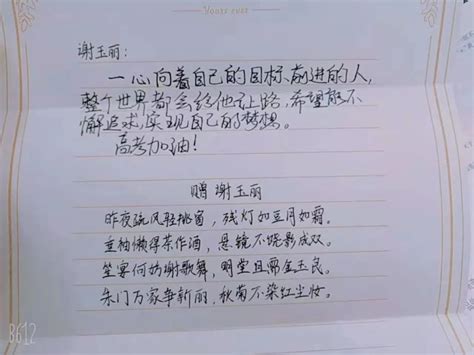 谢玉丽:
一心向着自己的目标前进的人,
整个世界都会给他让路,希望能不
懈追求,实现自己的梦想。
高考加油!
赠 谢玉丽
昨夜疏风轻挑窗,残灯如豆月如霜。
豆袖懒得茶作酒,悬镜不晓影成双。
笙宴何妨谢歌舞,明堂且需金玉良。
朱门万家争新丽,秋菊不染红尘妆。
8612